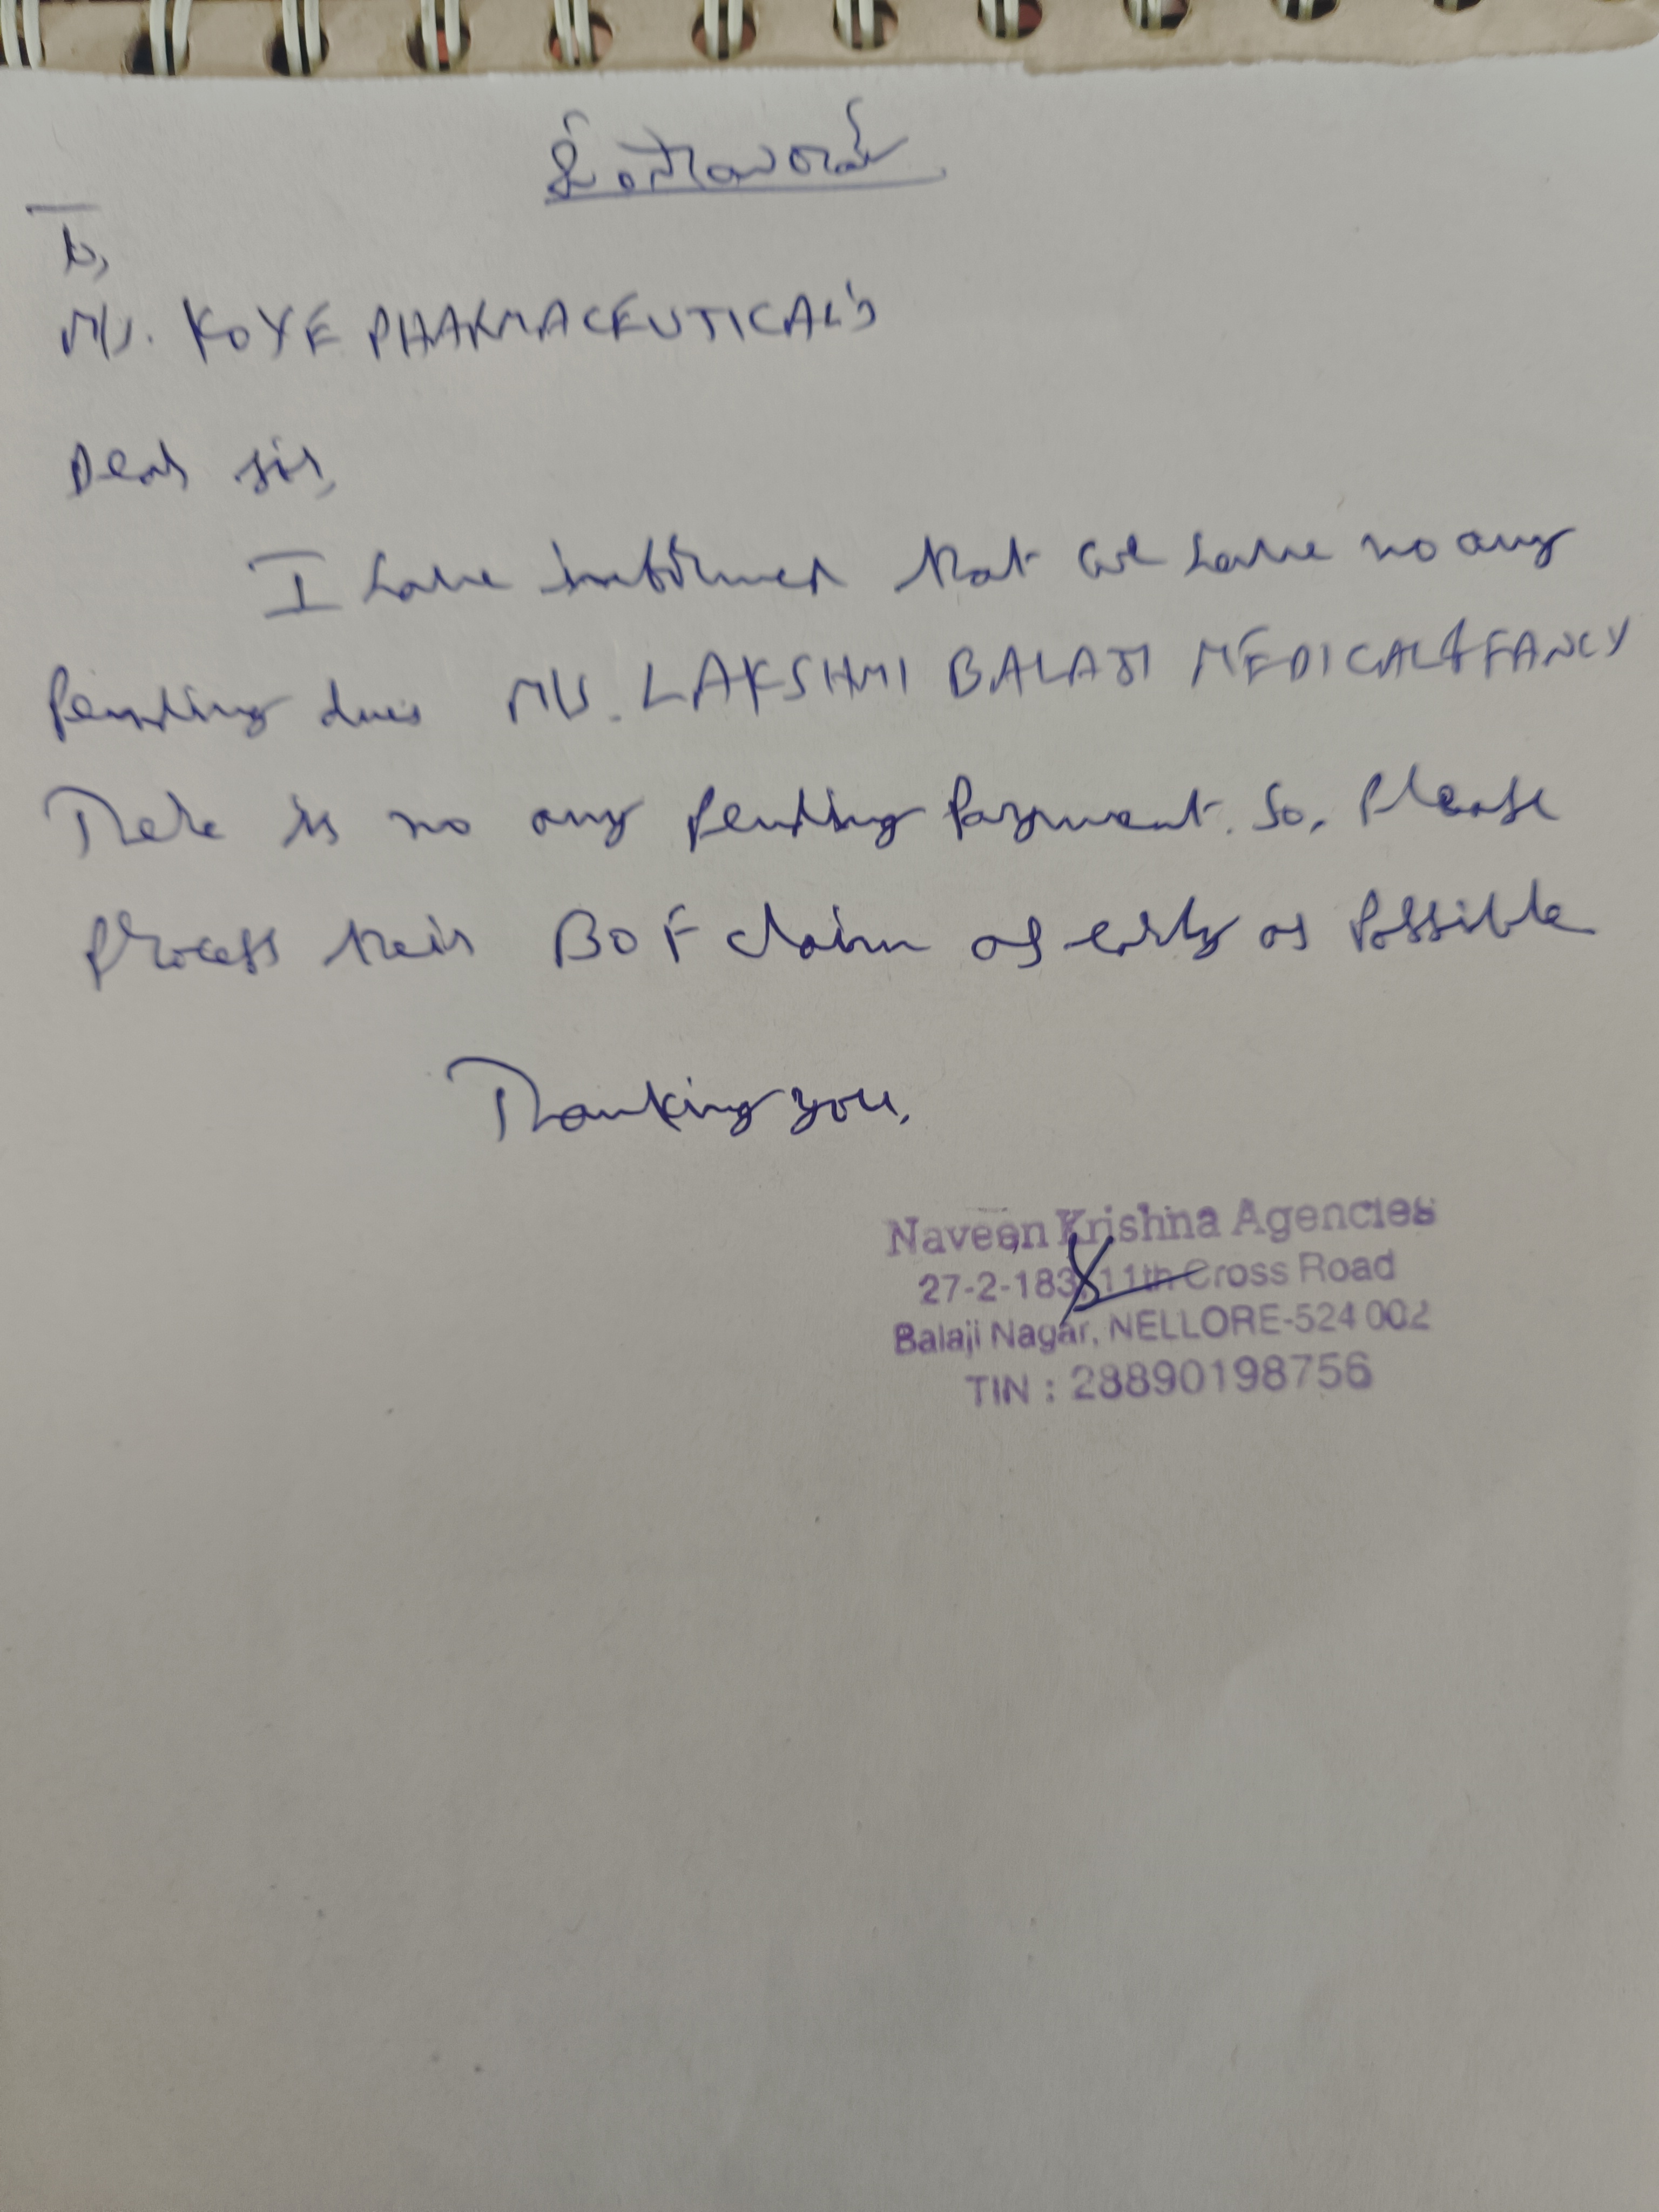 శ్రీ
To,
M/s. KOYE PHARMACEUTICAL'S
Dear sir,
I have informed that we have no any
Pending dues M/s. LAKSHMI BALAJI MEDICAL & FANCY
There is no any Pending Payment. So, Please
Process their BOF claim as early as Possible
Thanking you,
Naveen Krishna Agencies
27-2-183, 11th Cross Road
Balaji Nagar, NELLORE-524 002
TIN : 28890198756